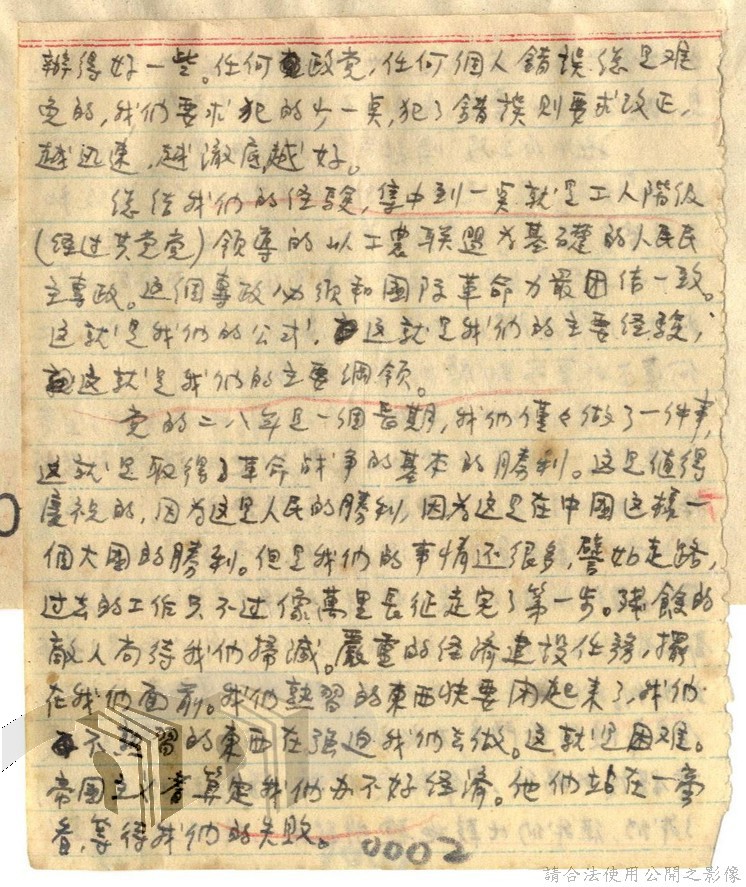 辦得好一些。任何政党，任何個人錯誤总是难
免的，我们要求犯的少一点，犯了錯誤则要求改正，
越迅速，越澈底，越好。
总结我们的经験，集中到一点就是工人階级
(经过共党党)領导的以工農联盟为基礎的人民民
主專政。这個專政必须和国际革命力量团结一致。
这就是我们的公式，这就是我们的主要经験，
这就是我们的主要綱領。
党的二八年是一個長期，我们僅々做了一件事，
这就是取得了革命战争的基本的勝利。这是值得
慶祝的，因为这是人民的勝利，因为这是在中國这樣一
個大國的勝利。但是我们的事情还很多，譬如走路，
过去的工作只不过像萬里長征走完了第一步。殘餘的
敵人尚待我们掃滅。嚴重的经濟建设任務，擺
在我们面前。我们熟習的東西快要闲起来了，我们
不熟習的東西在强迫我们去做。这就是困难。
帝国主义者算定我们办不好经済。他们站在一旁
看，等待我们的失败。
0002
請合法使用公開之影像